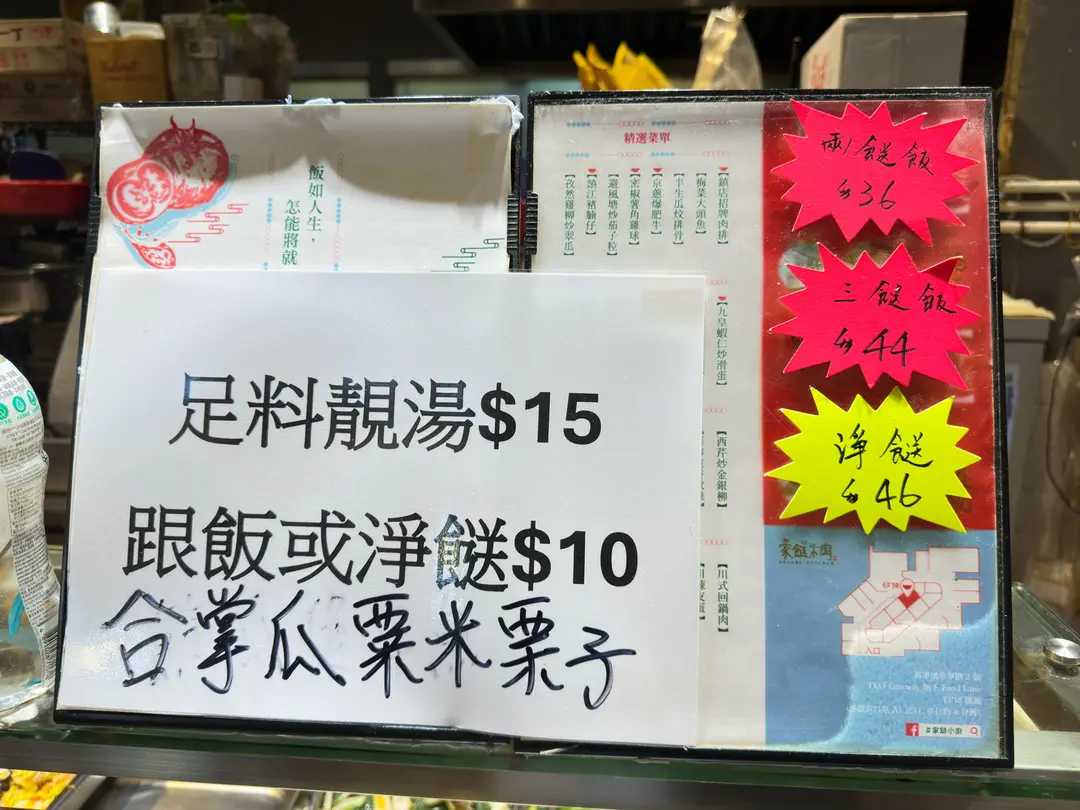 飯如人生，
怎能將就
足料靚湯$15
跟飯或淨餸$10
合掌瓜粟米栗子
精選菜單
【鎮店招牌肉排】
【梅菜大頭魚】
【京蔥爆肥牛】
【蜜椒薯角雞球】
【避風塘炒茄子粒】
【鎮江豬腩仔】
【孜然雞柳炒翠瓜】
【九皇蝦仁炒滑蛋】
【西芹炒金銀柳】
【川式回鍋肉】
兩餸飯
$36
三餸飯
$44
淨餸
$46
家餸小廚
入口
TKO Gateway 地下 Food Lane
#家餸小廚